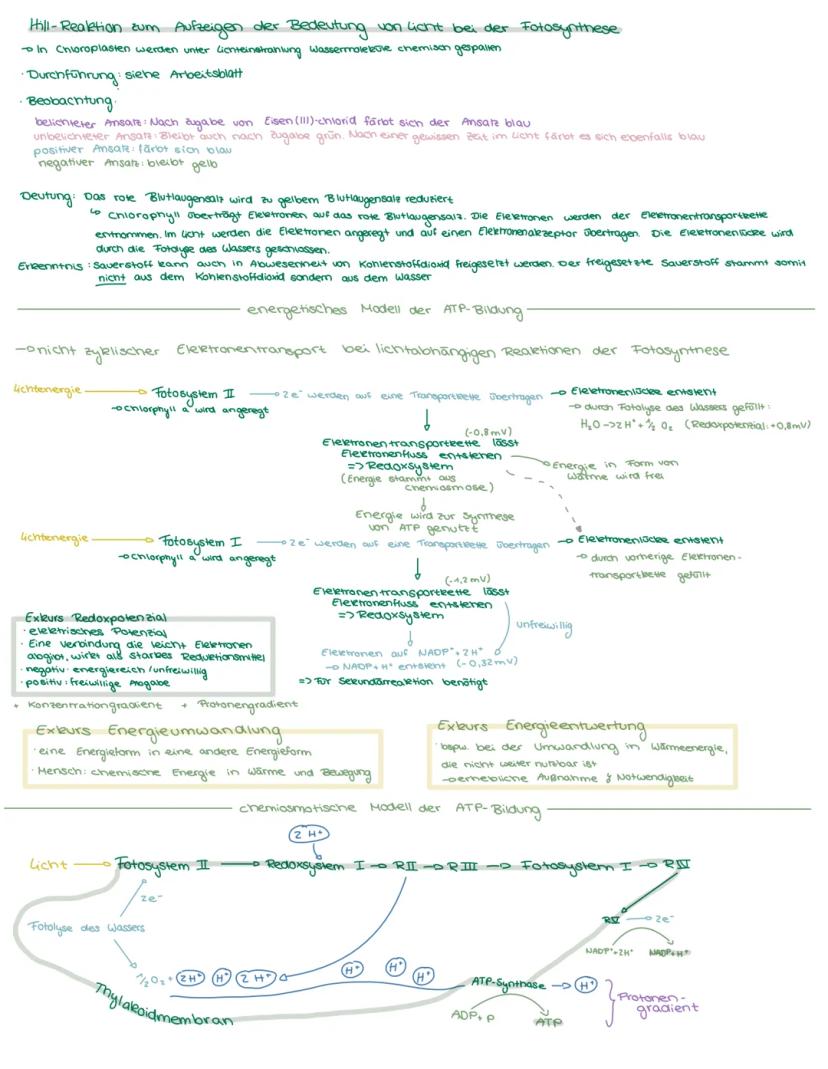 Hill-Reaktion zum Aufzeigen der Bedeutung von Licht bei der Fotosynthese
→ In Chloroplasten werden unter Lichteinstrahlung Wassermoleküle chemisch gespalten
· Durchführung: siehe Arbeitsblatt
· Beobachtung:
belichteter Ansatz: Nach Zugabe von Eisen(III)-chlorid färbt sich der Ansatz blau
unbelichteter Ansatz: Bleibt auch nach Zugabe grün. Nach einer gewissen Zeit im Licht färbt es sich ebenfalls blau
positiver Ansatz: färbt sich blau
negativer Ansatz: bleibt gelb
Deutung: Das rote Blutlaugensalz wird zu gelbem Blutlaugensalz reduziert
↳ Chlorophyll überträgt Elektronen auf das rote Blutlaugensalz. Die Elektronen werden der Elektronentransportkette
entnommen. Im Licht werden die Elektronen angeregt und auf einen Elektronenakzeptor übertragen. Die Elektronenlücke wird
durch die Fotolyse des Wassers geschlossen.
Erkenntnis: Sauerstoff kann auch in Abwesenheit von Kohlenstoffdioxid freigesetzt werden. Der freigesetzte Sauerstoff stammt somit
nicht aus dem Kohlenstoffdioxid sondern aus dem Wasser
energetisches Modell der ATP-Bildung
→ nicht zyklischer Elektronentransport bei lichtabhängigen Reaktionen der Fotosynthese
Lichtenergie → Fotosystem II → 2e⁻ werden auf eine Transportkette übertragen → Elektronenlücke entsteht
→ Chlorphyll a wird angeregt
→ durch Fotolyse des Wassers gefüllt:
H₂O → 2H⁺ + ½ O₂ (Redoxpotenzial: +0,8mV)
(-0,8mV)
Elektronentransportkette lässt
Elektronenfluss entstehen
=> Redoxsystem
(Energie stammt aus
chemiosmose)
Energie in Form von
Wärme wird frei
Energie wird zur Synthese
von ATP genutzt
Lichtenergie → Fotosystem I → 2e⁻ werden auf eine Transportkette übertragen → Elektronenlücke entsteht
→ Chlorphyll a wird angeregt
→ durch vorherige Elektronen-
transportkette gefüllt
(-1,2mV)
Elektronentransportkette lässt
Elektronenfluss entstehen
=> Redoxsystem
unfreiwillig
Elektronen auf NADP⁺ + 2H⁺
→ NADP + H⁺ entsteht (-0,32mV)
=> Für Sekundärreaktion benötigt
Exkurs Redoxpotenzial
· elektrisches Potenzial
· Eine Verbindung die leicht Elektronen
abgibt, wirkt als starkes Reduktionsmittel
· negativ: energiereich/unfreiwillig
· positiv: freiwillige Abgabe
+ Konzentrationgradient + Protonengradient
Exkurs Energieumwandlung
· eine Energieform in eine andere Energieform
· Mensch: chemische Energie in Wärme und Bewegung
Exkurs Energieentwertung
· bspw. bei der Umwandlung in Wärmeenergie,
die nicht weiter nutzbar ist
→ erhebliche Außnahme & Notwendigkeit
chemiosmotische Modell der ATP-Bildung
2 H⁺
Licht → Fotosystem II → Redoxsystem I → RII → RIII → Fotosystem I → RIV
2e⁻
RV → 2e⁻
Fotolyse des Wassers
NADP⁺+2H⁺ NADP+H⁺
½ O₂ + 2H⁺ H⁺ 2 H⁺ H⁺ H⁺ H⁺
ATP-Synthase → H⁺
Thylakoidmembran
ADP + P ATP
Protonen-
gradient